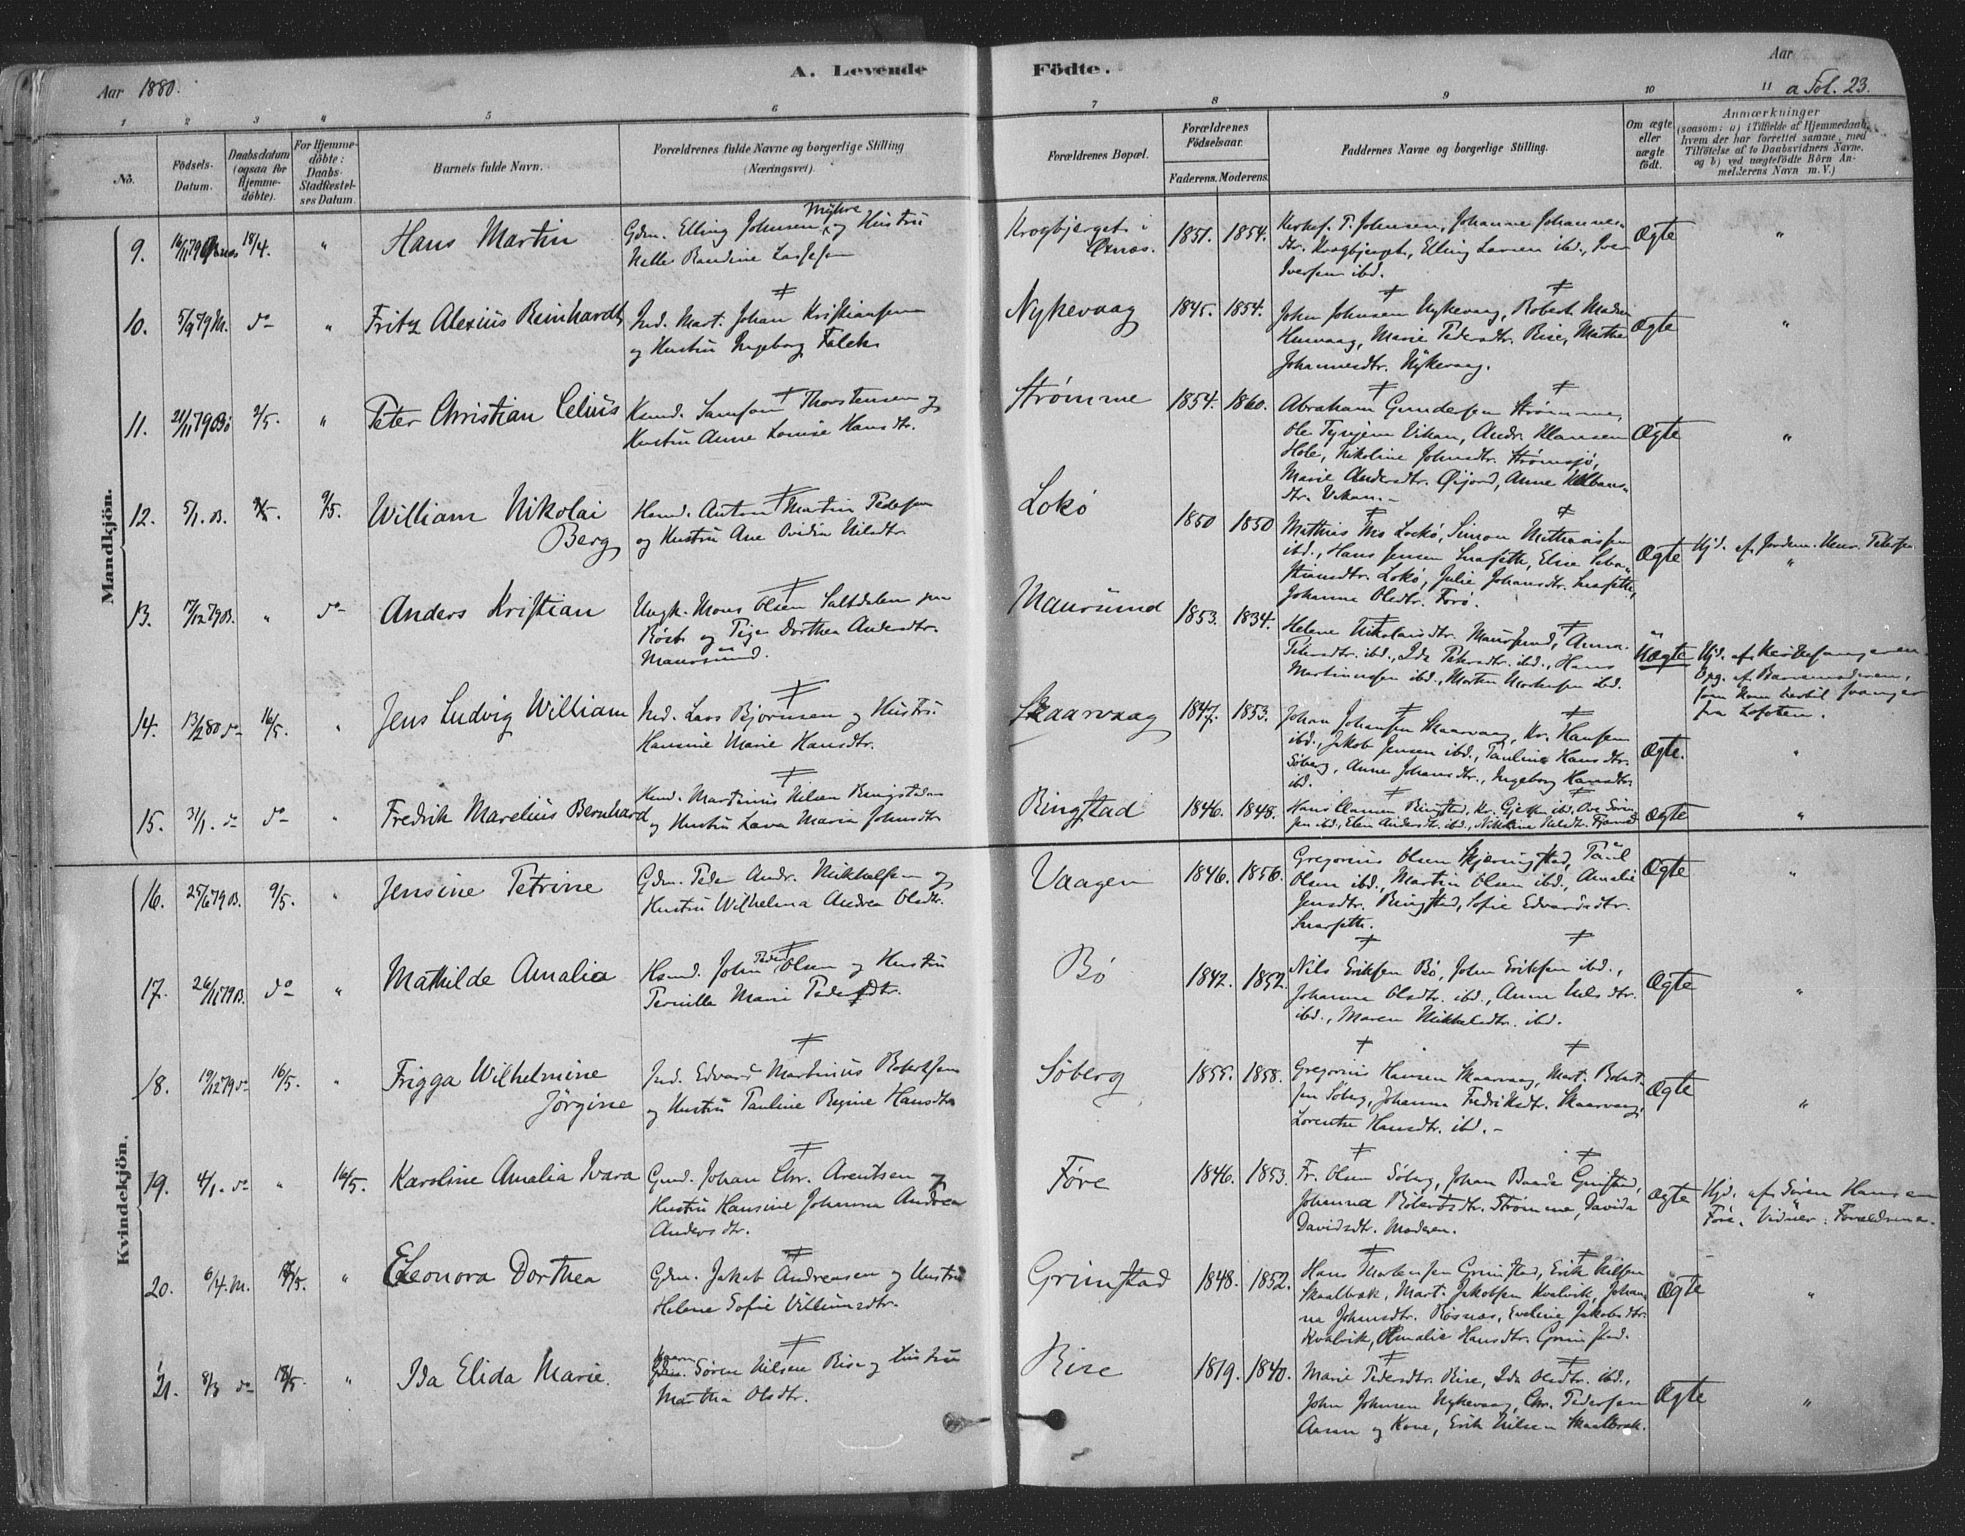 Aar 1880.
A. Levende
Födte.
Aar
a Fol. 23.
1
2
3
4
5
6
7
8
9
10
11
No.
Födsels-
Datum.
Daabsdatum
(ogsaa for
Hjemme-
döbte).
For Hjemme-
döbte:
Daabs-
Stadfæstel-
ses Datum.
Barnets fulde Navn.
Forældrenes fulde Navne og borgerlige Stilling
(Næringsvei).
Forældrenes Bopæl.
Forældrenes
Födselsaar.
Faderens. Moderens.
Faddernes Navne og borgerlige Stilling.
Om ægte
eller
uægte
födt.
Anmærkninger
(saasom: a) i Tilfælde af Hjemmedaab,
hvem der har forrettet samme, med
Tilföielse af to Daabsvidners Navne,
og b) ved uægtefödte Börn An-
melderens Navn m. V.)
Mandkjön.
9.
18/4.
"
Hans Martin
Gdm. Elling Johnsen Myhre og Hustru
Krogbjerget i
Øxnæs.
1851.
1854.
Johnsen, Johanne Johannes-
dtr. Krogbjerget, Elling Larsen ibd., Iver
Iversen ibd.
Ægte
"
10.
5/9 79 M.
do
"
Fritz Alexius Reinhardt
Ind. Mart. Johan Kristiansen
og Hustru Ingeborg Falch.
Nykevaag
1845.
1854.
John Johnsen Nykevaag, Robert Madsen
Husvaag, Marie Pedersdtr. Rise, Mathea
Johannesdtr. Nykevaag.
Ægte
"
11.
21/11 79 Bö
2/5.
"
Peter Christian Celius
Hsmd. Samson Thorstensen og
Hustru Anne Louise Hansdtr.
Strømme
1854.
1860.
Abraham Gundersen Strømme,
Vikan, Andr. Hansen
Hole, Nikoline Johnsdtr. Strømsjø,
Marie Andersdtr. Øijord, Anne
dtr. Vikan.-
Ægte
"
12.
5/1. B.
9/5.
William Nikolai
Berg
Hsmd. Anton Martin Pedersen
og Hustru Ane Ovidia Nilsdtr.
Lokø
1850
1850
Mathias Lokö, Simon Mathiassen
ibd., Hans Jensen Snarseth, Elise Seba-
stiansdtr. Lokö, Julie Johansdtr. Snarseth,
Johanna Olsdtr. Forö.
Ægte
Hjd. af Jordem. Petersen
"
13.
17/12 79 B.
"
do
Anders Kristian
Ungk. Mons Olsen Saltdalen paa
Röst og Pige Dorthea Andersdtr.
Maursund.
Maursund
1853.
1834.
Helene Nikolaisdtr. Maursund, Anna
Petersdtr. ibd., Ida Petersdtr. ibd., Hans
Martinussen ibd., Morten ibd.
Uægte
Hjd. af Kirkesangeren.
Opg. af Barnemoderen,
som kom hertil svanger
fra Lofoten.
14.
13/2 80 do
16/5.
"
Jens Ludvig William
Ind. Lars Bjørnsen og Hustru
Hansine Marie Hansdtr.
Skaarvaag
1847.
1853.
Johan Johansen Skaarvaag, Kr. Hansen
ibd., Jakob Jensen ibd., Pauline Hansdtr.
Söberg, Anne Johansdtr., Ingeborg Hansdtr.
ibd.
Ægte.
"
15.
31/1. do
do
"
Fredrik Marelius Bernhard
Hsmd. Martinus Nilsen Ringstad
og Hustru Lava Maria Johnsdtr.
Ringstad
1846.
1848.
Ringstad, Kr. ibd., Ove Sören-
sen ibd., Andersdtr. ibd.,
Ægte
"
Kvindekjön.
16.
25/6 79 B.
9/5.
"
Jensine Petrine
Gdm. Peder Andr. Mikkelsen og
Hustru Wilhelma Andrea Olsdtr.
Vaagen
1846.
1856.
Gregorius Olsen Skjæringstad, Paul
Olsen ibd., Martin Olsen ibd., Amalie
Jensdtr. Ringstad, Sofie Edvardsdtr.
Snarseth.
Ægte
"
17.
26/11 79 B.
do
"
Mathilde Amalia
Hsmd. John Peder Olsen og Hustru
Pernille Marie Pedersdtr.
Bö
1842.
1852.
Nils Eriksen Bö, John Eriksen ibd.,
Johanna Olsdtr. ibd., Anne Nilsdtr.
ibd., Maren Mikkelsdtr. ibd.
Ægte
"
18.
19/12 79 do
16/5.
"
Frigga Wilhelmine
Jörgine
Ind. Edvard Martinius Robertsen
og Hustru Pauline Regine Hansdtr.
Söberg
1855.
1858.
Gregorius Hansen Skaarvaag, Mart. Robert-
sen Söberg, Johanna Fredriksdtr. Skaarvaag,
Lorentse Hansdtr. ibd.-
Ægte
"
19.
4/1. do
"
16/5.
Karoline Amalia Ivara
Gmd. Johan Chr. Arentsen og
Hustru Hansine Johanna Andrea
Andersdtr.
Føre
1846.
1853.
Fr. Olsen Söberg, Johan Baade Grimstad,
Johanna Robertsdtr. Strømme, Davida
Davidsdtr. Moderen.
Ægte
Hjd. af Sören Hansen
Føre. Vidner: Forældrene.
20.
6/4. M.
18/5.
"
Eleonora Dorthea
Gdm. Jakob Andreasen og Hustru
Helene Sofie Villumsdtr.
Grimstad
1848.
1852.
Hans Mortensen Grimstad, Erik Nilsen
Skaalbrak, Mart. Jakobsen Kvalvik, Johan-
na Johnsdtr. Røsnæs, Eveline Jakobsdtr.
Kvalvik, Amalie Hansdtr. Grimstad.
Ægte
"
21.
8/3 do
18/5.
"
Ida Elida Marie.
Sören Nilsen Rise og Hustru
Martha Olsdtr.
Rise
1819.
1840.
Marie Pedersdtr. Rise, Ida Olsdtr. ibd.,
John Johnsen Nykevaag, Chr. Pedersen
Aasan og Kone, Erik Nilsen Skaalbrak.
Ægte
"